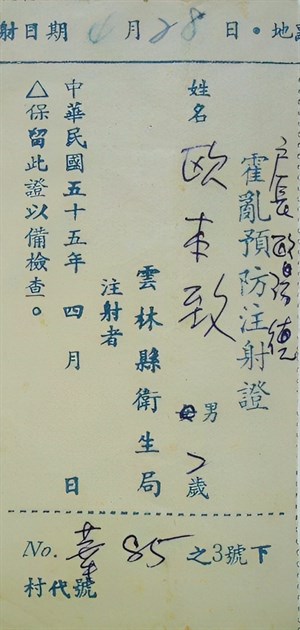 射日期 4 月 28 日。地
戶長歐
霍亂預防注射證
姓名 歐 男 歲
雲林縣衛生局
注射者
中華民國五十五年 四月 日
△保留此證以備檢查。
No. 85 之3號下
村代號